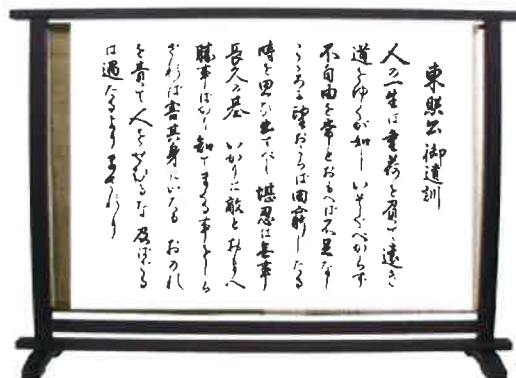 東照公御遺訓
人の一生は重荷を負て遠き
道をゆくが如しいそぐべからず
不自由を常とおもへば不足なし
こころに望おこらば困窮したる
時を思ひ出すべし堪忍は無事
長久の基いかりは敵とおもへ
勝事ばかり知てまくる事をしら
ざれば害其身にいたるおのれ
を責て人をせむるな及ばざる
は過たるよりまされり